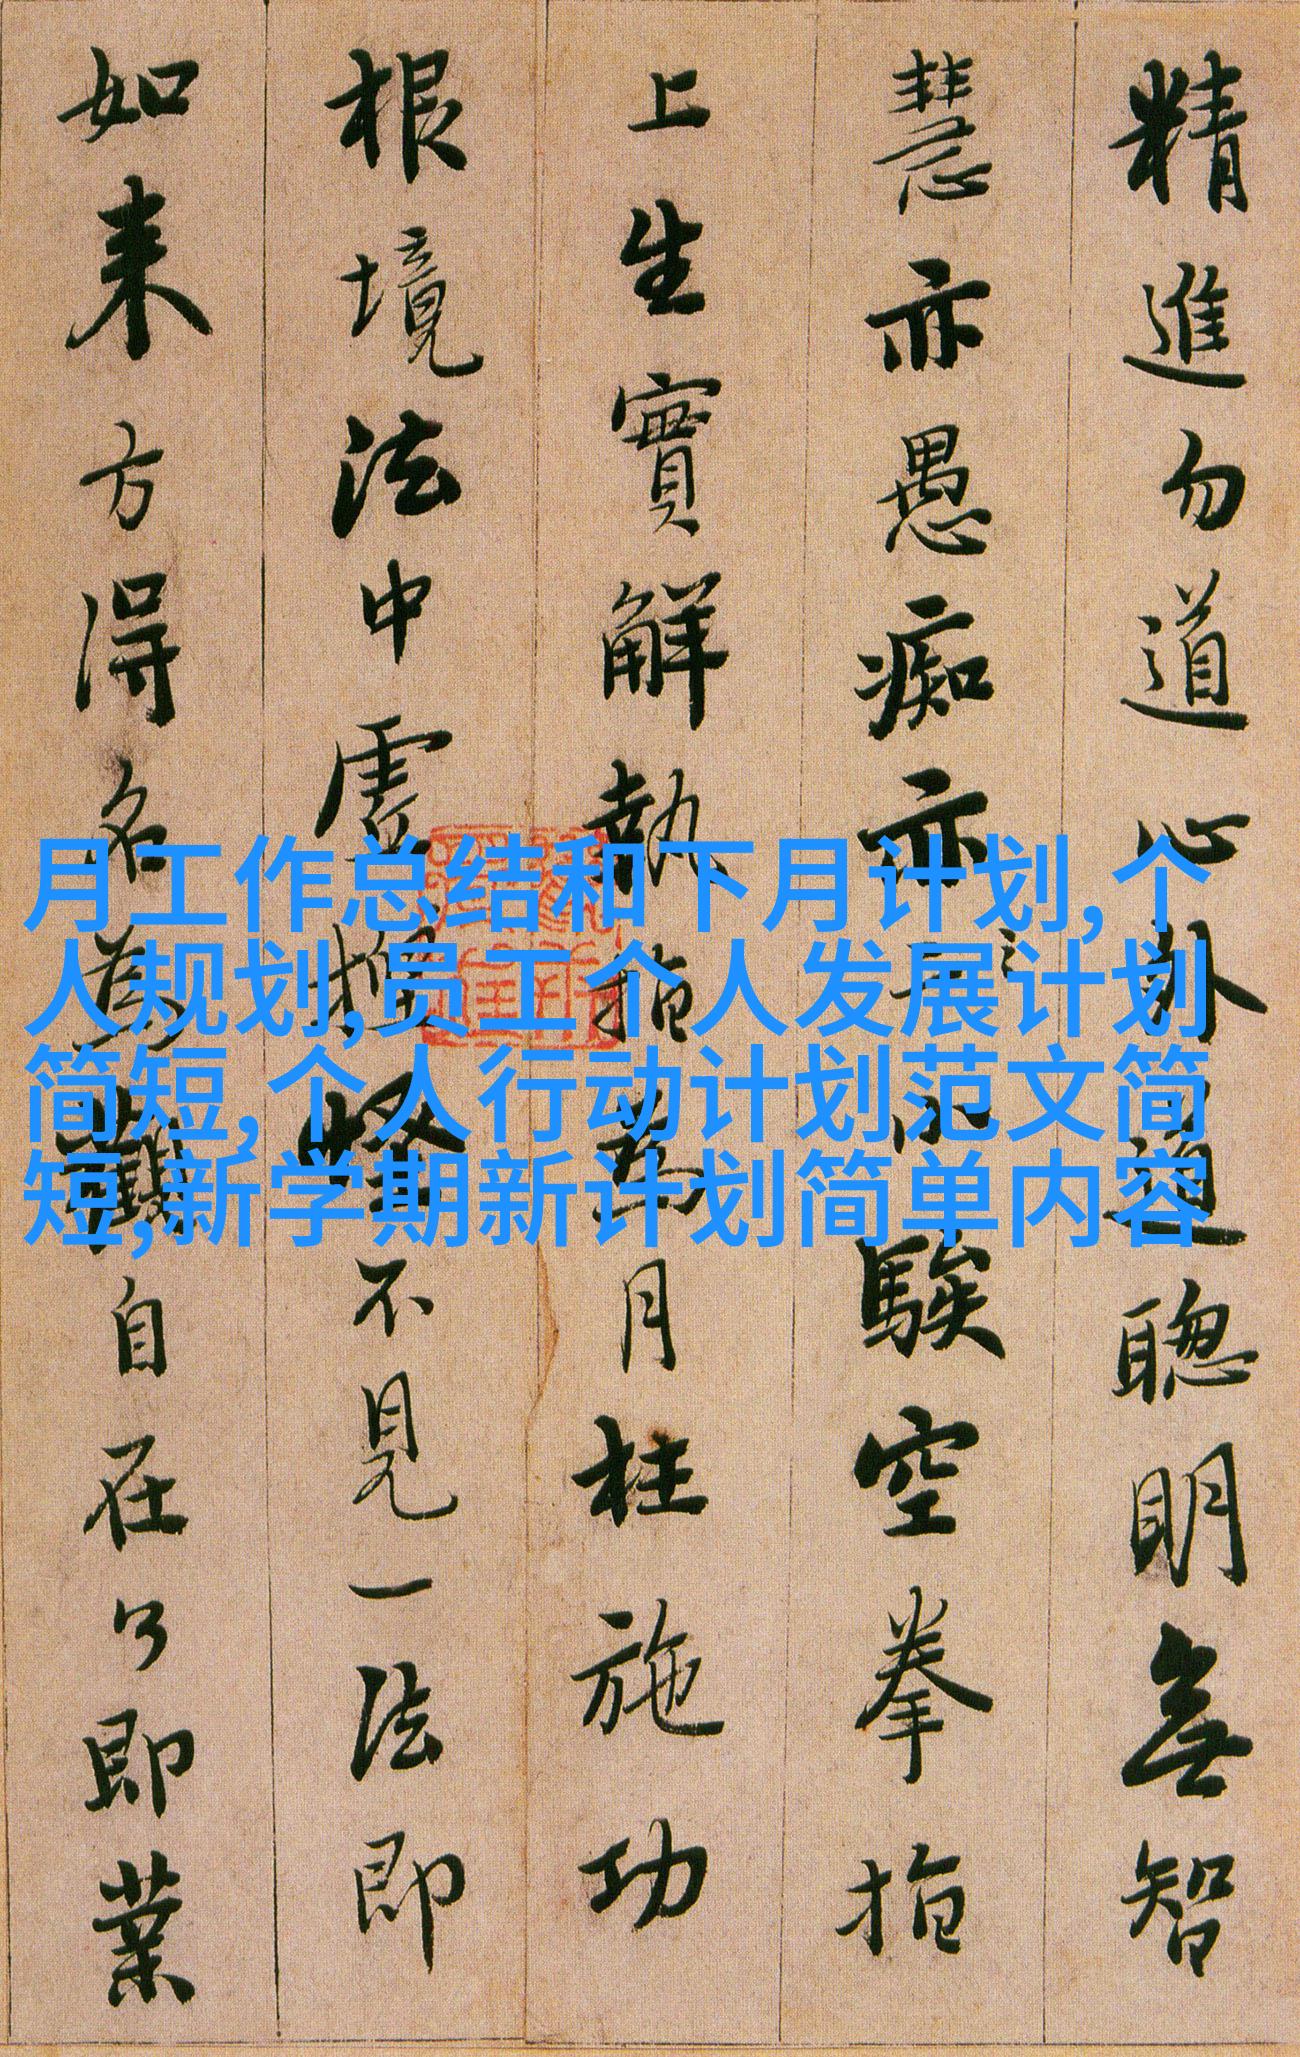 精進勿道心外道聰明無智
慧亦愚痴亦小騃空拳指
上生實解執指為月枉施功
根境法中虛捏怪不見一法即
如来方得名為觀自在了即業
月工作总结和下月计划,个
人规划,员工个人发展计划
简短,个人行动计划范文简
短,新学期新计划简单内容